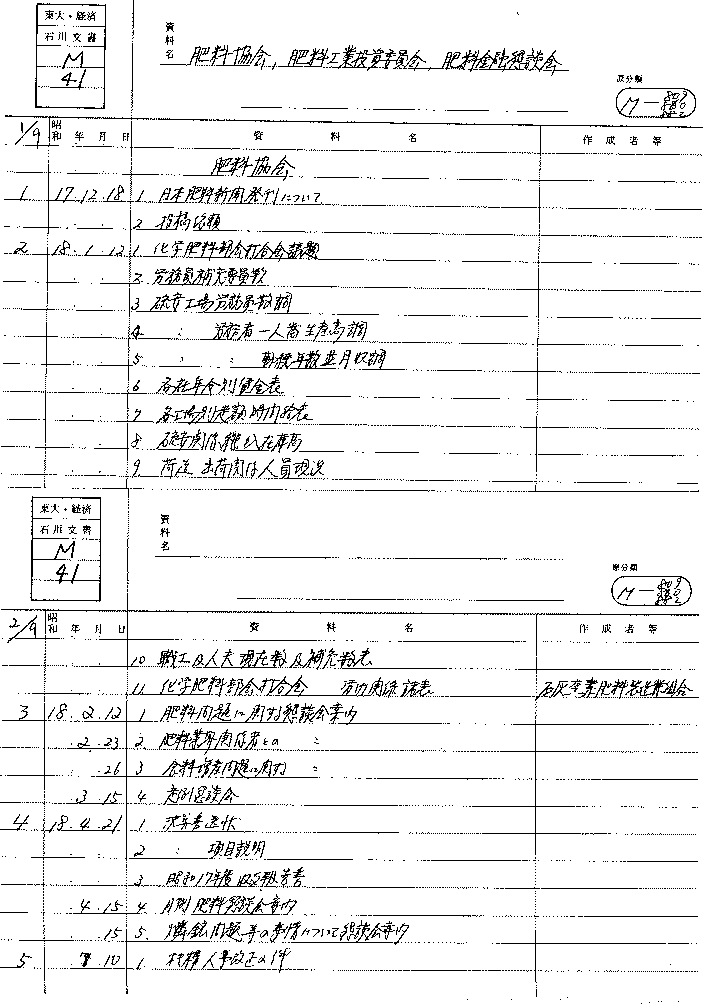 東大・経済
石川文書
M
41
資料名 肥料協会, 肥料工業投資委員会, 肥料金融懇談会
原分類
M—
1/9 昭和 年 月 日 資 料 名 作 成 者 等
肥料協会
1 17.12.18 1 日本肥料新聞発刊について
2 投稿依頼
2 18.1.12 1 化学肥料部会打合会議題
2 労務員補充要員数
3 硫安工場労務員数調
4 〃 労務者一人当生産高調
5 〃 〃 勤続年数並月収調
6 各在年令別賃金表
7 各工場別 時間 表
8 硫安関係 在庫高
9 荷造 出荷関係人員現況
東大・経済
石川文書
M
41
資料名
原分類
M—
2/9 昭和 年 月 日 資 料 名 作 成 者 等
10 職工及人夫現在数及補充数表
11 化学肥料部会打合会 労働関係諸表 石灰窒素肥料製造業組合
3 18.2.12 1 肥料問題に関する懇談会案内
.2.23 2 肥料業界関係者との 〃
.26 3 食料増産問題に関する 〃
.3.15 4 定例懇談会
4 18.4.21 1 決算書送状
2 〃 項目説明
3 昭和17年度収支報告書
.4.15 4 月例肥料懇談会案内
.15 5. 燐鉱問題等の事情について懇談会案内
5 7 10 1 機構人事改正の件